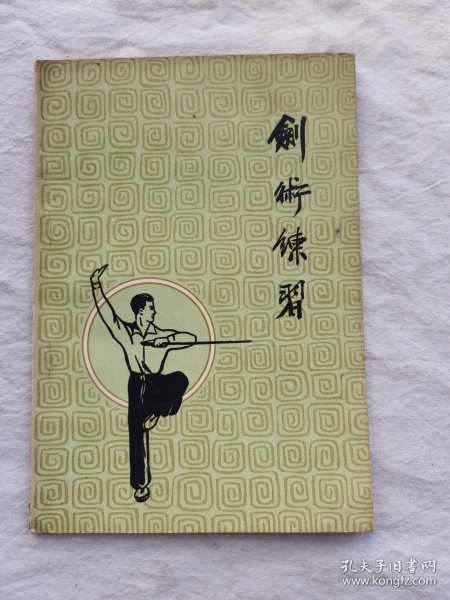 劍術練習
孔夫子旧书网
www.kongfz.com